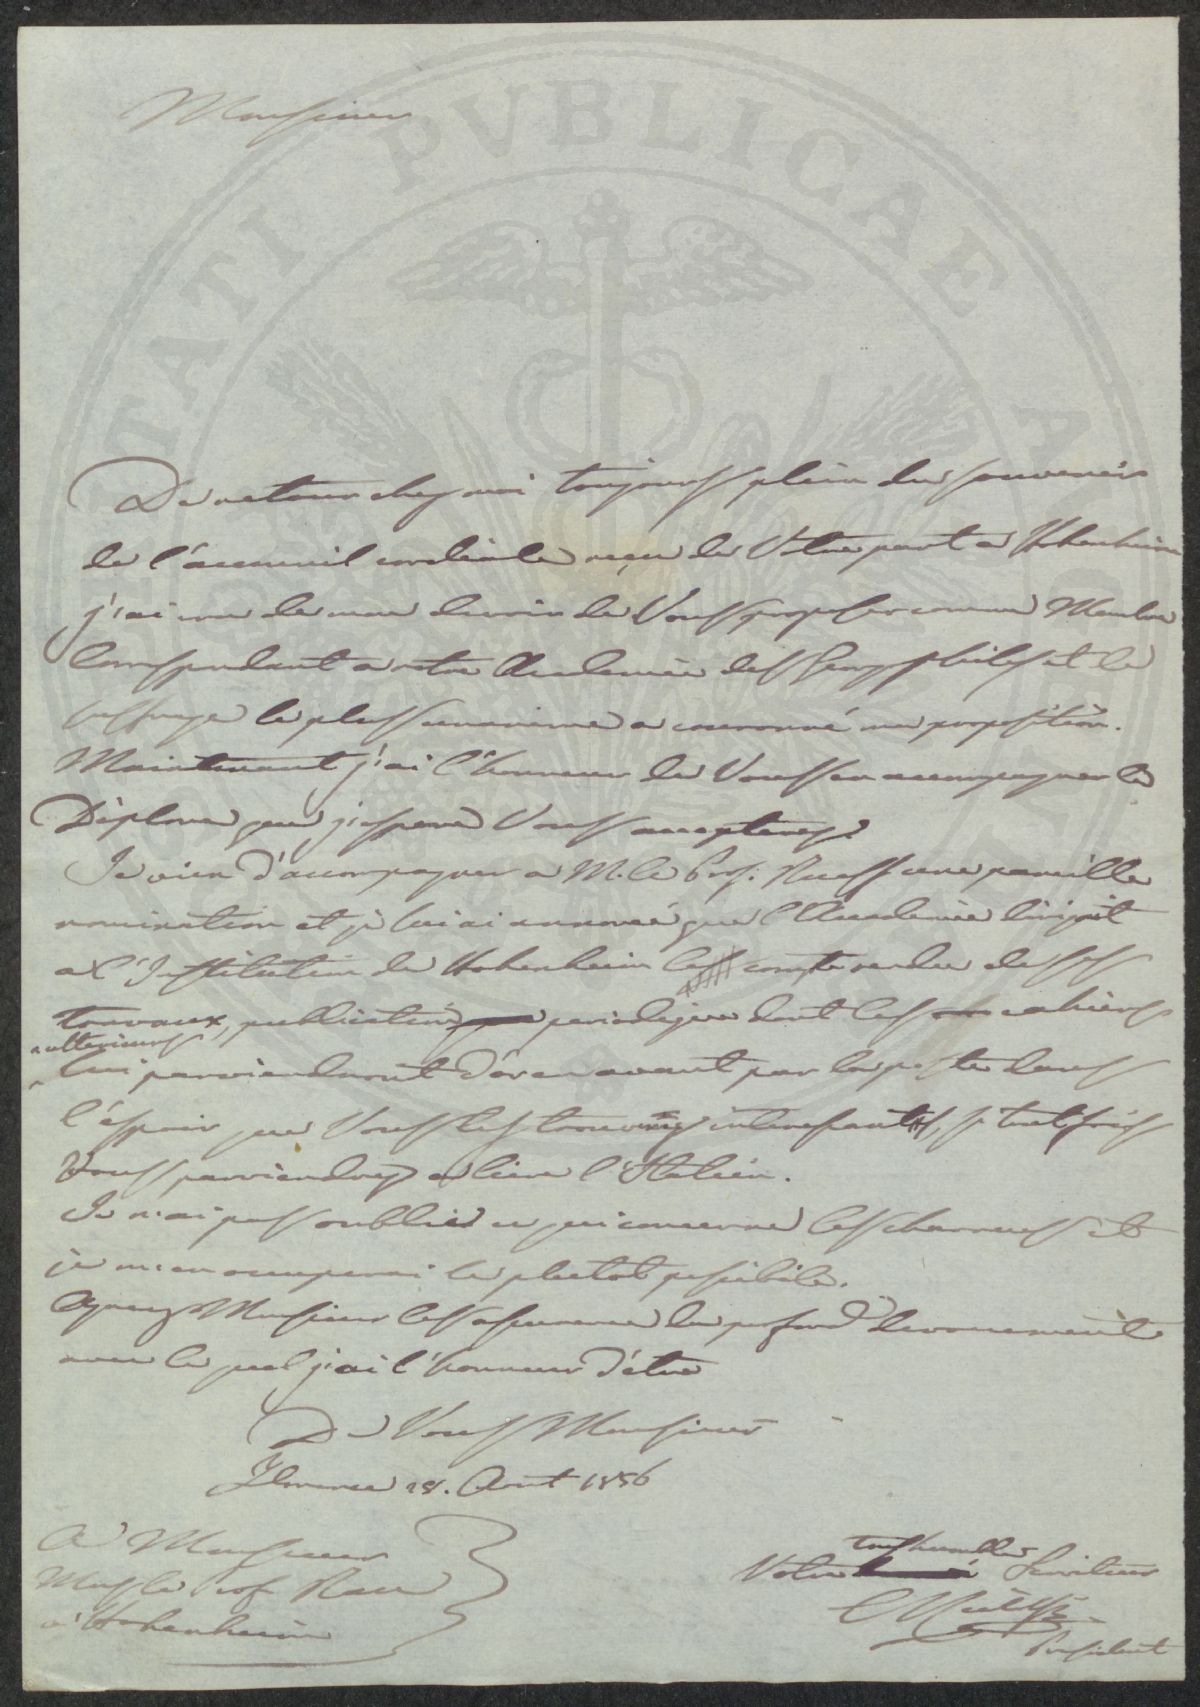 Monsieur
De retour chez moi toujours plein du souvenir
de l'acceuil cordiale reçu de Votre part a Hohenheim
j'ai cru de mon devoir de Vous proposer comme Membre
Correspondant a notre Academie des Georgophiles et le
suffrage le plus unanime a couronné ma proposition.
Maintenant j'ai l'honneur de Vous en accompagner le
Diplome que j'espere Vous accepterez.
Je vien d'accompagner a M. le Prof. Rueff une pareille
nomination et je lui ai annoncé que l'Academie dirigeit
a l'Institution de Hohenheim le compte rendu de ses
travaux, publication periodique dont les cahiers
ulterieurs
lui parviendront d'orenavant par la poste dans
l'espoir que Vous les trouviez interessants, si toutfois
Vous parviendrez a lire l'Italien.
Je n'ai pas oublié ce qui concerne les charrues et
je m'en occuperai le plutot possibile.
Agreez Monsieur les assurance du profond devouement
avec le quel j'ai l'honneur d'etre
De Vous Monsieur
Florence 28. Aout 1856
A Monsieur
Mons. le Prof. Rau
a Hohenheim
tres humble
Votre Serviteur
President
PUBLICAE